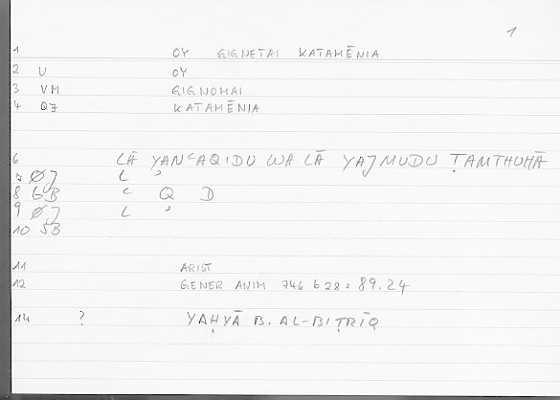 1
1 OY GIGNETAI KATAMĒNIA
2 U OY
3 VM GIGNOMAI
4 QJ KATAMĒNIA
6 LĀ YANʿAQIDU WA LĀ YAJMUDU ṬAMTHUHĀ
7 ØJ L ʾ
8 GB ʿ Q D
9 ØJ L ʾ
10 JB
11 ARIST
12 GENER ANIM 746 b 28 : 89.24
14 ? YAḤYĀ B. AL-BIṬRĪQ